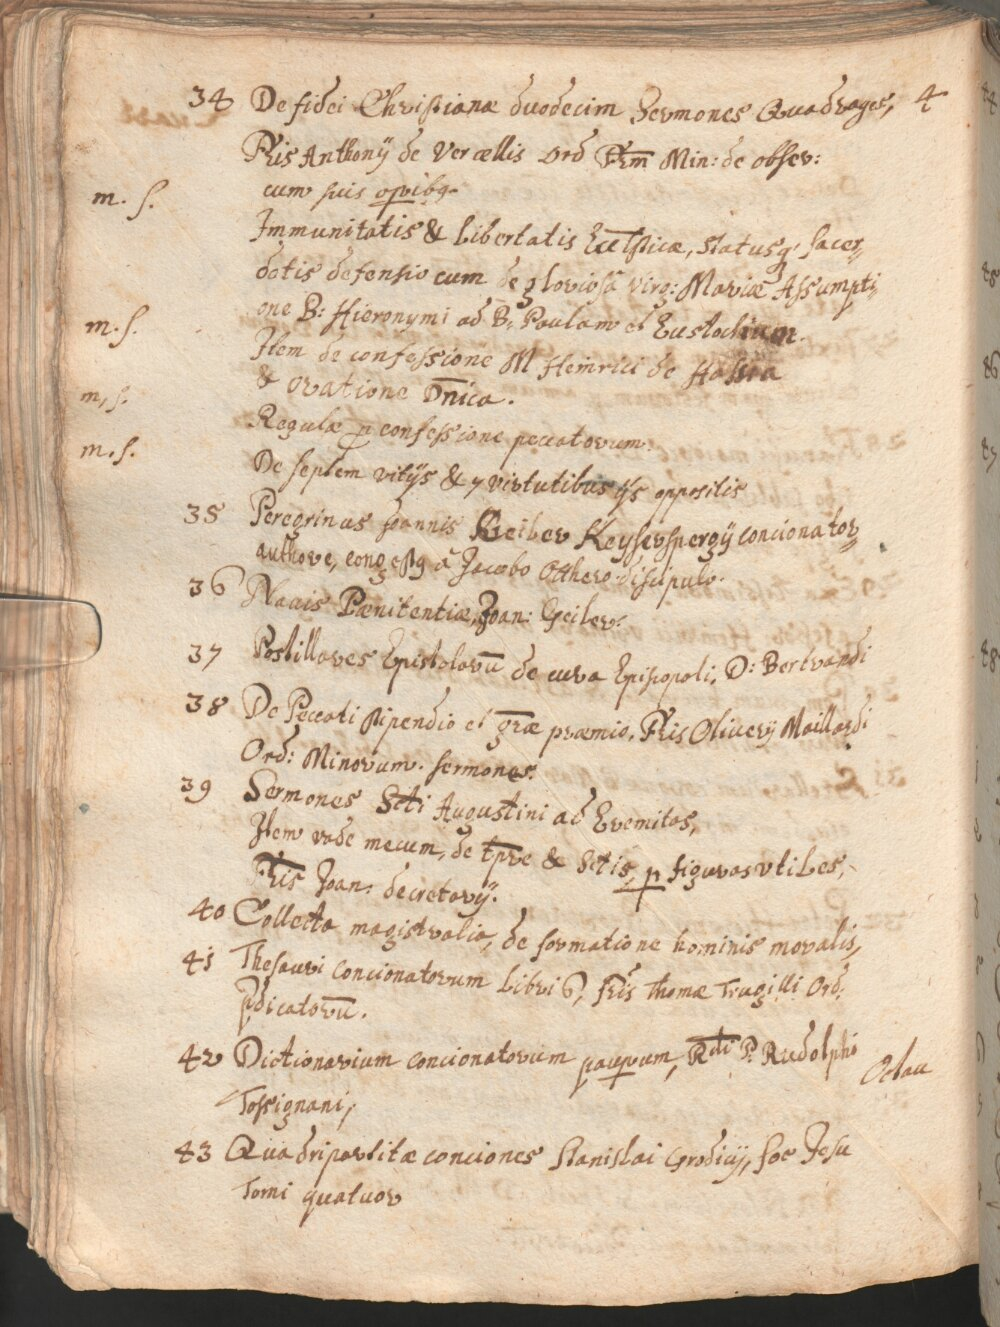 34 De fidei Christianæ duodecim Sermones Quadrages, 4
Fris Anthonij de Vercellis Ord Frm Min: de obser:
cum suis opribq.
m. s.
Immunitatis & Libertatis Eccl̄sticæ, statusq. sacer-
dotis defensio cum de gloriosa virg: Mariæ Assumpti-
one B: Hieronymi ad B. Paulam et Eustochium.
m. s.
Item de confessione M Heinrici de Hassia
& oratione Dnica.
m, s.
Regulæ p confessione peccatorum.
m. s.
De septem vitijs & 7 virtutibus ijs oppositis
35 Peregrinus Joannis Geiler Keyserspergij concionator
authore, congestq à Jacobo Otthero discipulo.
36 Navis Pænitentiæ, Joan: Geiler.
37 Postillares Epistolarū de cura Episcopoli, D: Bertrandi
38 De Peccati stipendio et græ præmio, Fris Oliuerij Maillardi
Ord: Minorum. sermones.
39 Sermones Scti Augustini ad Eremitas,
Item vade mecum, de tpre & Sctis, p figuras vtiles,
Fris Joan: decretorij.
40 Collecta magistralia, de formatione hominis moralis,
41 Thesauri Concionatorum Libri 6, Fris Thomæ Trugilli Ord.
Pdicatorū.
42 Dictionarium concionatorum pauperum, Rdi P. Rudolphi Octau
Tossignani,
43 Quadripartitæ conciones Stanislai Grodicij, soc Jesu
Tomi quatuor